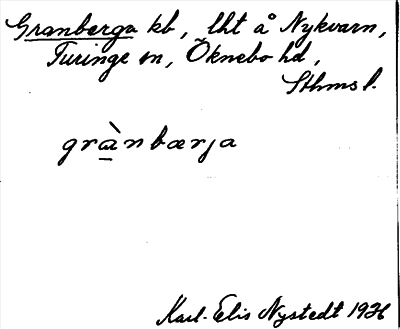 Granberga kb, lht å Nykvarn,
Turinge sn, Öknebo hd,
Sthms l.
grànbærja
Karl-Elis Nystedt 1936